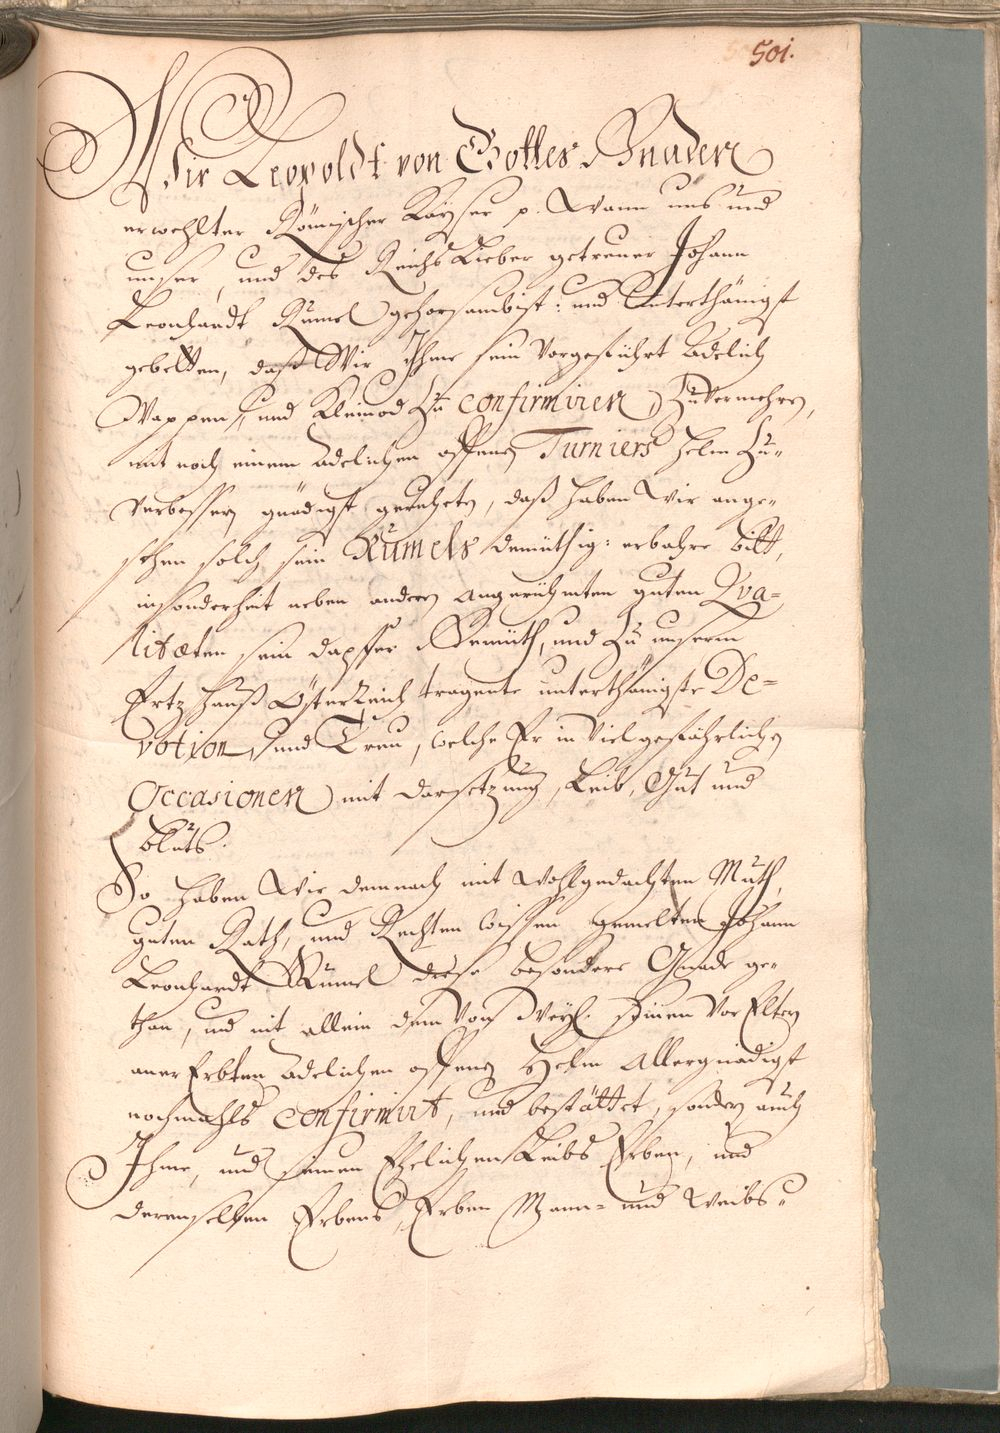 501.
Wir Leopoldt von Gottes Gnaden
erwehlter Römischer Kayser p. Wann uns und
unser, und des Reichs Lieber getreuer Johann
Leonhardt Rümel gehorsambist: und Unterthänigst
gebetten, daß Wir Ihme sein Vorgeführt Adelich
Wappen, und Kleinod Zu confirmiren, Zuvermehren,
mit noch einem Adelichen offenen Turniers helm Zu-
verbessern gnädigst geruheten, daß haben Wir ange-
sehen solch sein Rümels demüthig: erbahre bitt,
insonderheit neben andern angerühmten guten Qva-
litæten sein dapffer Gemüth, und Zu unserm
Ertz Hauß Österreich tragente unterthänigste De-
votion, und Treu, welche Er in Viel gefährlichen
Occasionen mit darsetzung, Leib, Gut und
Bluts.
So haben Wir demnach mit wohlgedachten Muth,
guten Rath, und Rechten wissen gemelten Johann
Leonhardt Rümel diese besondere Gnade ge-
than, und nit allein dem Von Weyl. seinen Vor Eltern
anerErbten Adelichen offenen Helm Allergnädigst
nochmahls confirmirt, und bestättet, sondern auch
Ihme, und seinen Ehelichen Leibs Erben, und
derenselben Erbens, Erben Mann- und Weibs-